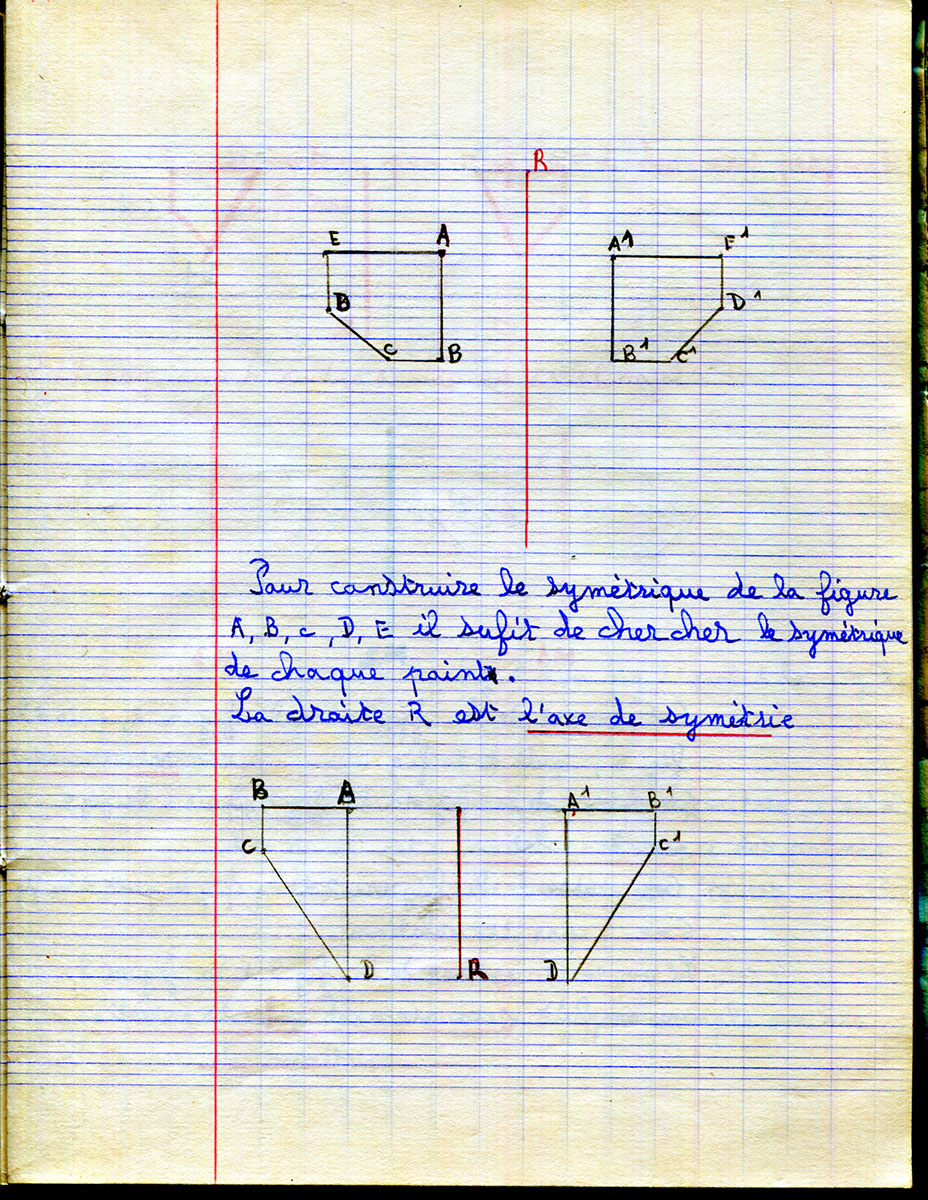 R
E A A1 E1
D D1
C B B1 C1
Pour construire le symétrique de la figure
A, B, c, D, E il sufit de chercher le symétrique
de chaque point.
La droite R est l'axe de symétrie
B A A1 B1
C C1
D R D